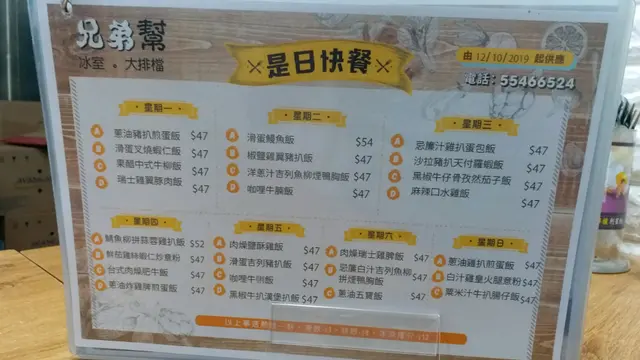 兄弟幫
冰室 · 大排檔
是日快餐
由 12/10/2019 起供應
電話：55466524
星期一
A 蔥油豬扒煎蛋飯 $47
B 滑蛋叉燒蝦仁飯 $47
C 果醋中式牛柳飯 $47
D 瑞士雞翼豚肉飯 $47
星期二
A 滑蛋鰻魚飯 $54
B 椒鹽雞翼豬扒飯 $47
C 洋蔥汁吉列魚柳煙鴨胸飯 $47
D 咖哩牛腩飯 $47
星期三
A 忌廉汁雞扒蛋包飯 $47
B 沙拉豬扒天付羅蝦飯 $47
C 黑椒牛仔骨孜然茄子飯 $47
D 麻辣口水雞飯 $47
星期四
A 鯖魚柳拼蒜蓉雞扒飯 $52
B 鮮茄雞絲蝦仁炒意粉 $47
C 台式肉燥肥牛飯 $47
D 蔥油炸雞髀煎蛋飯 $47
星期五
A 肉燥鹽酥雞飯 $47
B 滑蛋吉列豬扒飯 $47
C 咖哩牛脷飯 $47
D 黑椒牛扒漢堡扒飯 $47
星期六
A 肉燥瑞士雞髀飯 $47
B 忌廉白汁吉列魚柳
拼煙鴨胸飯 $47
C 蔥油五寶飯 $47
星期日
A 蔥油雞扒煎蛋飯 $47
B 白汁雞皇火腿意粉 $47
C 粟米汁牛扒腸仔飯 $47